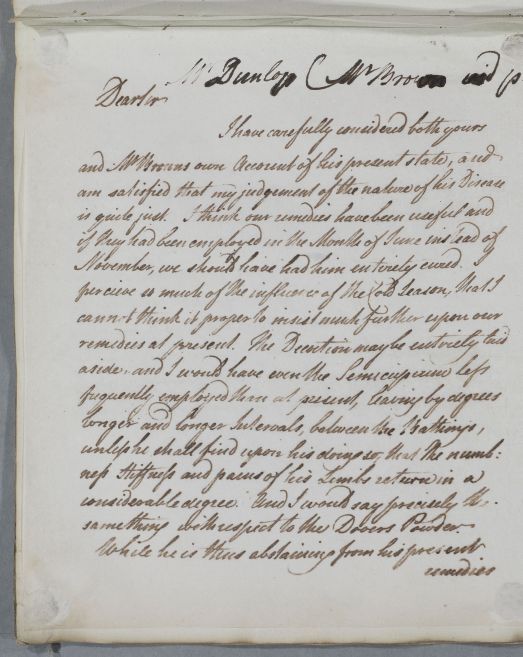 Mr Dunlop (Mr Brown vid p
Dear Sir
I have carefully considered both yours
and Mr Browns own Account of his present state, and
am satisfied that my judgement of the nature of his Disease
is quite just. I think our remedies have been useful and
if they had been employed in the Month of June instead of
November, we should have had him entirely cured. I
percieve so much of the influence of the Cold Season, that I
cannot think it proper to insist much further upon our
remedies at present. The Decoction may be entirely laid
aside, and I would have even the Semicupium less
frequently employed than at present, leaving by degrees
longer and longer Intervals, between the Bathings,
unless he shall find upon his doing so, that the numb:
ness Stiffness and pains of his Limbs return in a
considerable degree. And I would say precisely the
same thing with respect to the Dovers Powder.
While he is thus abstaining from his present
remedies